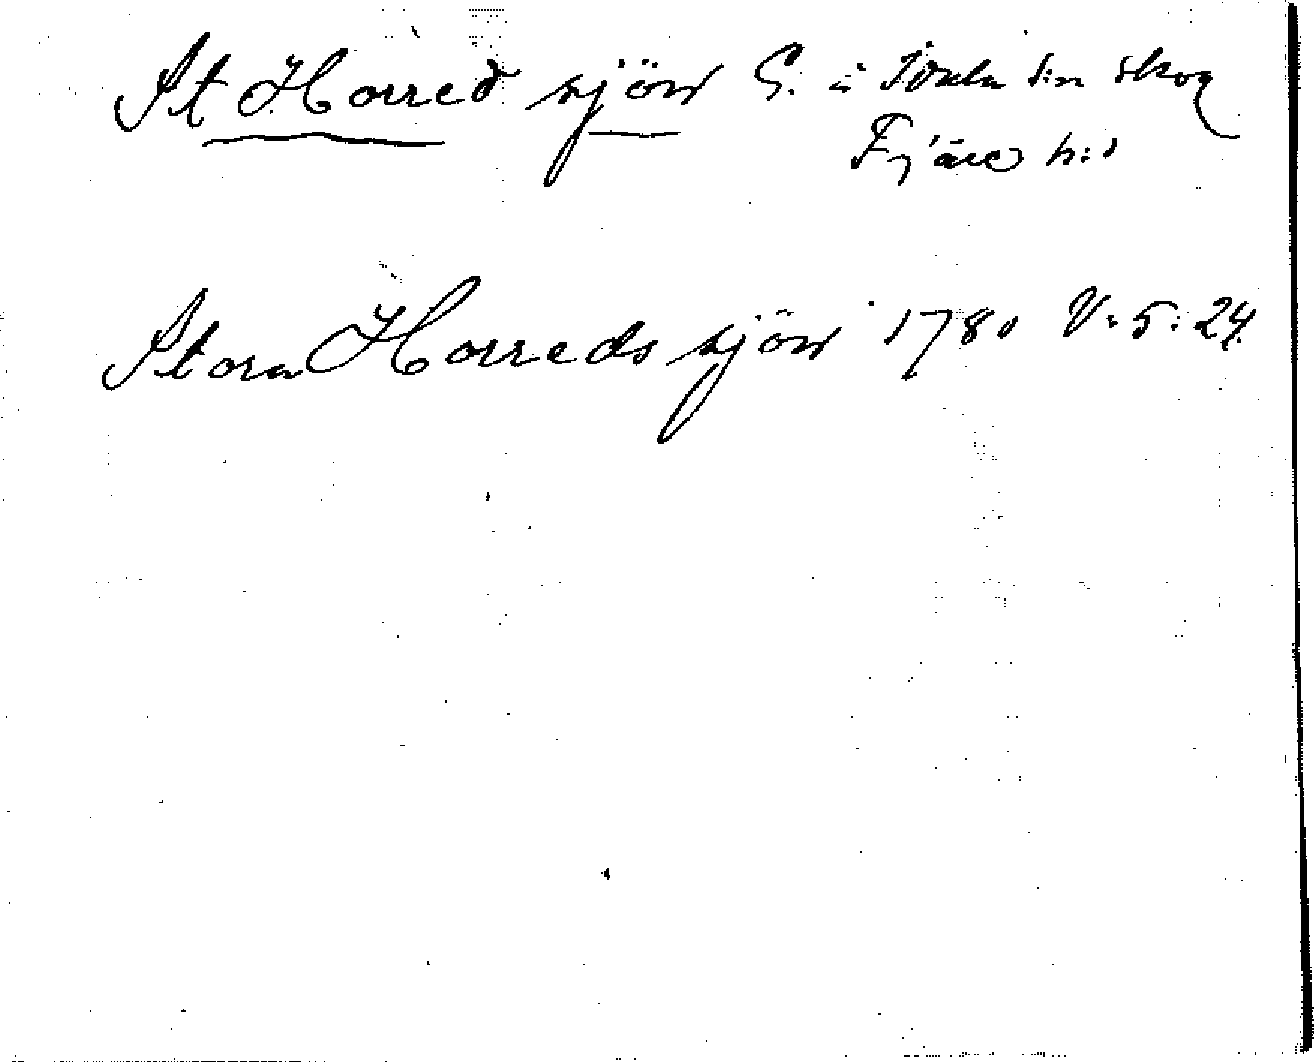 St Horred sjön S. å Idala s:n skog
Fjäre h:d
Stora Horreds sjön 1780 V:5:24.